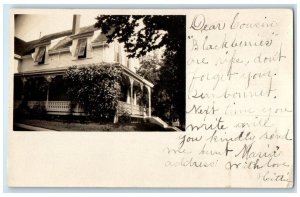 Dear Cousin
"Blackberries"
are ripe, don't
forget your
sunbonnet.
Next time you
write will
you kindly send
me Aunt Maria's
address. With love